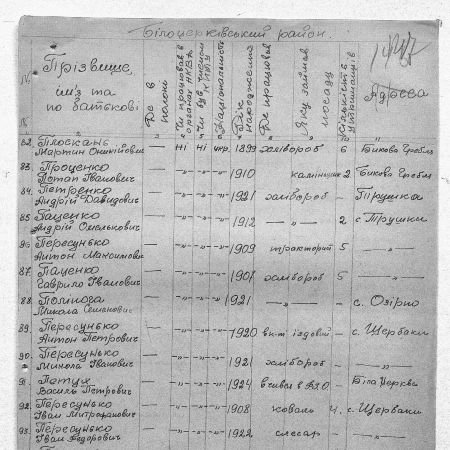 Білоцерківський район.
Прізвище,
ім'я та
по батькові
Де в полоні
Чи працював в органах НКВД
Чи був членом
Національність
Рік народження
Де працював
Яку займав посаду
Кількість утриманців
Адреса
82. Плоскань — ні ні укр. 1899 хлібороб 6 Бикова Гребля
Мартин Оникійович
83. Проценко — -"- -"- -"- 1910 каменщик 2 Бикова Гребля
Потап Іванович
84. Петренко — -"- -"- -"- 1921 хлібороб – Трушки
Андрій Давидович
85. Паценко — -"- -"- -"- 1912 —"— 2 с. Трушки
Андрій Омелькович
86. Пересунько — -"- -"- -"- 1909 тракторист 5 —"—
Антон Максимович
87. Паценко — -"- -"- -"- 1907 хлібороб 5 —"—
Гаврило Іванович
88. — -"- -"- -"- 1921 —"— – с. Озірно
Микола
89. Пересунько — -"- -"- -"- 1920 їздовий – с. Щербаки
Антон Петрович
90. Пересунько — -"- -"- -"- 1921 хлібороб – —"—
Микола Іванович
91. Петух — -"- -"- -"- 1924 – Біла Церква
Василь Петрович
92. Пересунько — -"- -"- -"- 1908 коваль 4 с. Щербаки
Іван Митрофанович
93. Пересунько — -"- -"- -"- 1922 слесар – —"—
Іван Федорович